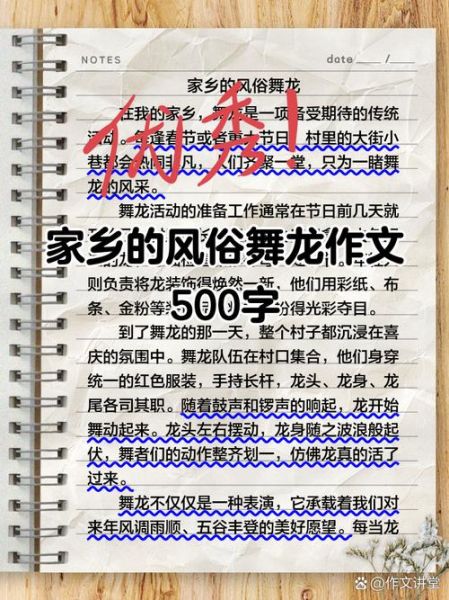 NOTES
date ____ /____
家乡的风俗舞龙
在我的家乡，舞龙是一项备受期待的传统
活动。每逢春节或者重大节日，村里的大街小
巷都会热闹非凡，人们齐聚一堂，只为一睹舞
龙的风采。
优秀!
舞龙活动的准备工作通常在节日前几天就
家乡的风俗舞龙作文
500字
则负责将龙装饰得焕然一新，他们用彩纸、布
条、金粉等 得光彩夺目。
到了舞龙的那一天，整个村子都沉浸在喜
庆的氛围中。舞龙队伍在村口集合，他们身穿
统一的红色服装，手持长杆，龙头、龙身、龙
尾各司其职。随着鼓声和锣声的响起，龙开始
舞动起来。龙头左右摆动，龙身随之波浪般起
伏，舞者们的动作整齐划一，仿佛龙真的活了
过来。
舞龙不仅仅是一种表演，它承载着我们对
来年风调雨顺、五谷丰登的美好愿望。每当龙
@作文讲堂